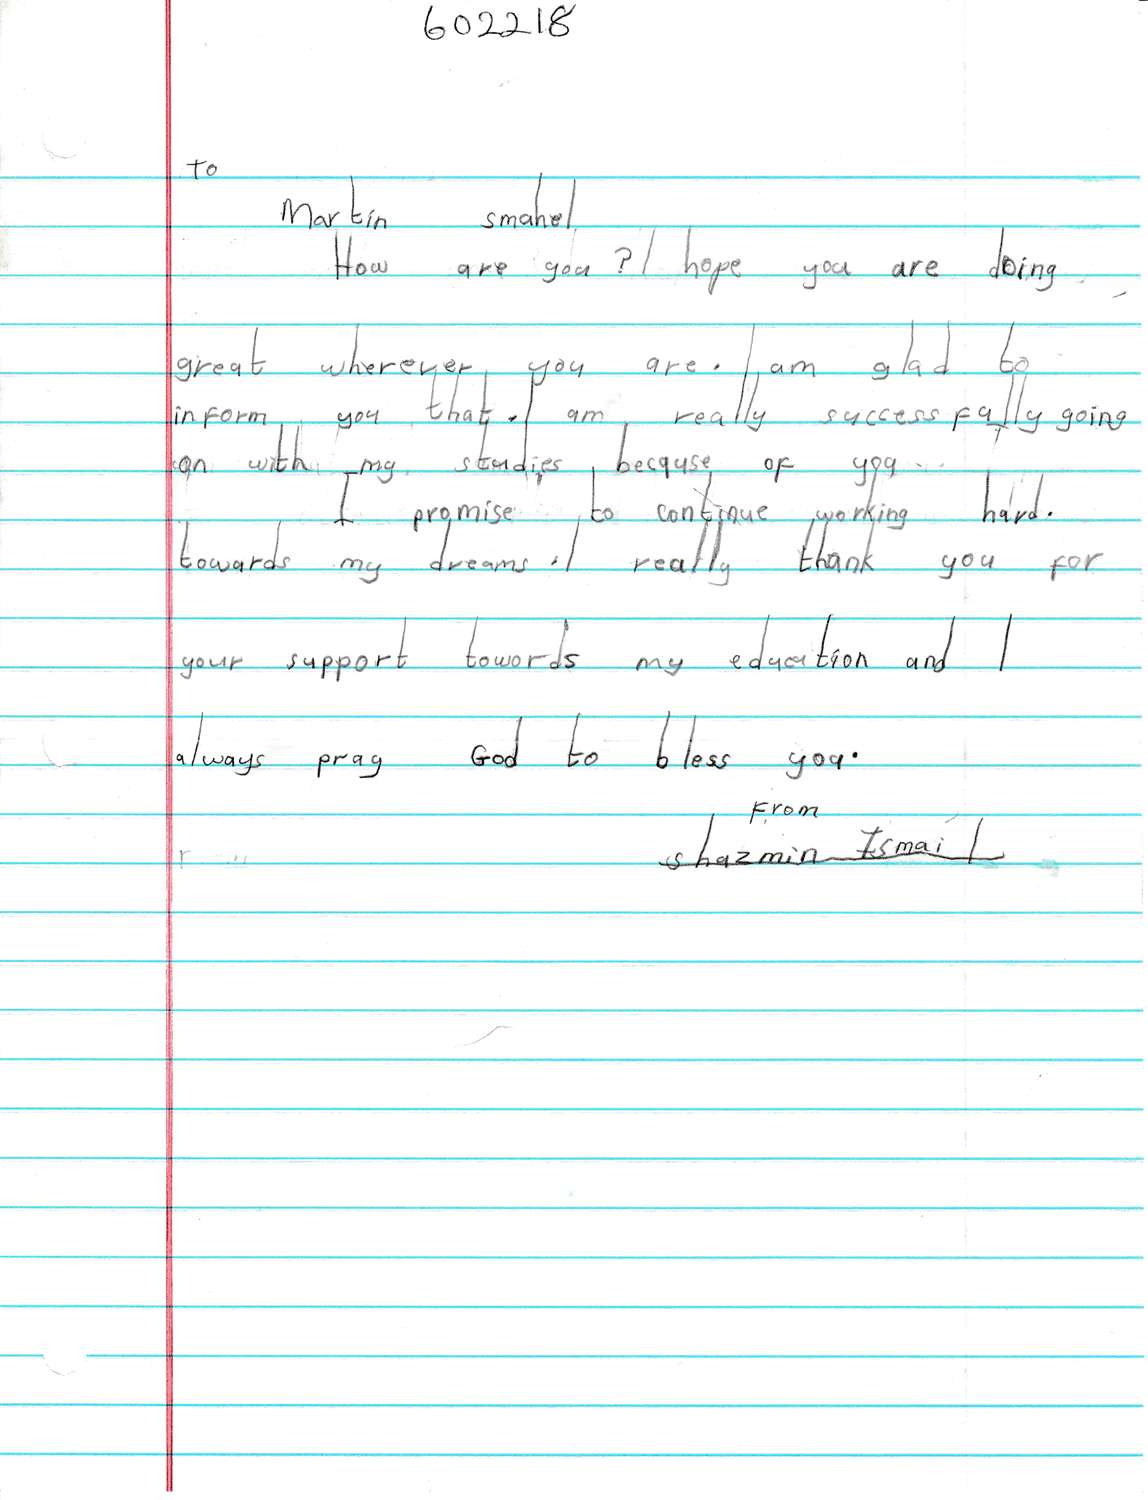 602218
to
Martin smahel
How are you? I hope you are doing
great wherever you are. I am glad to
inform you that. I am really successfully going
on with my studies because of you.
I promise to continue working hard.
towards my dreams. I really thank you for
your support towords my education and I
always pray God to bless you.
From
shazmin Ismail